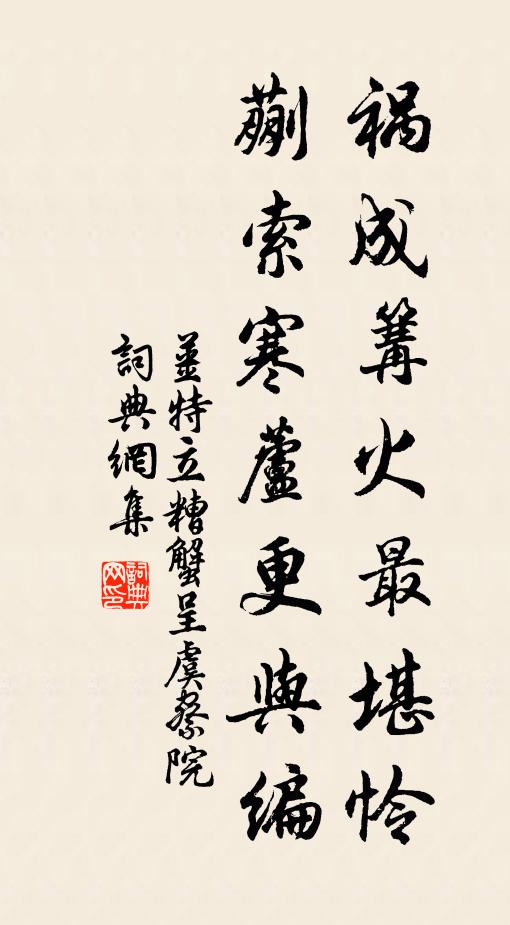 禍成篝火最堪怜
蒯索寒蘆更與編
姜特立糟蟹呈虞察院
詞典網集
詞典网印